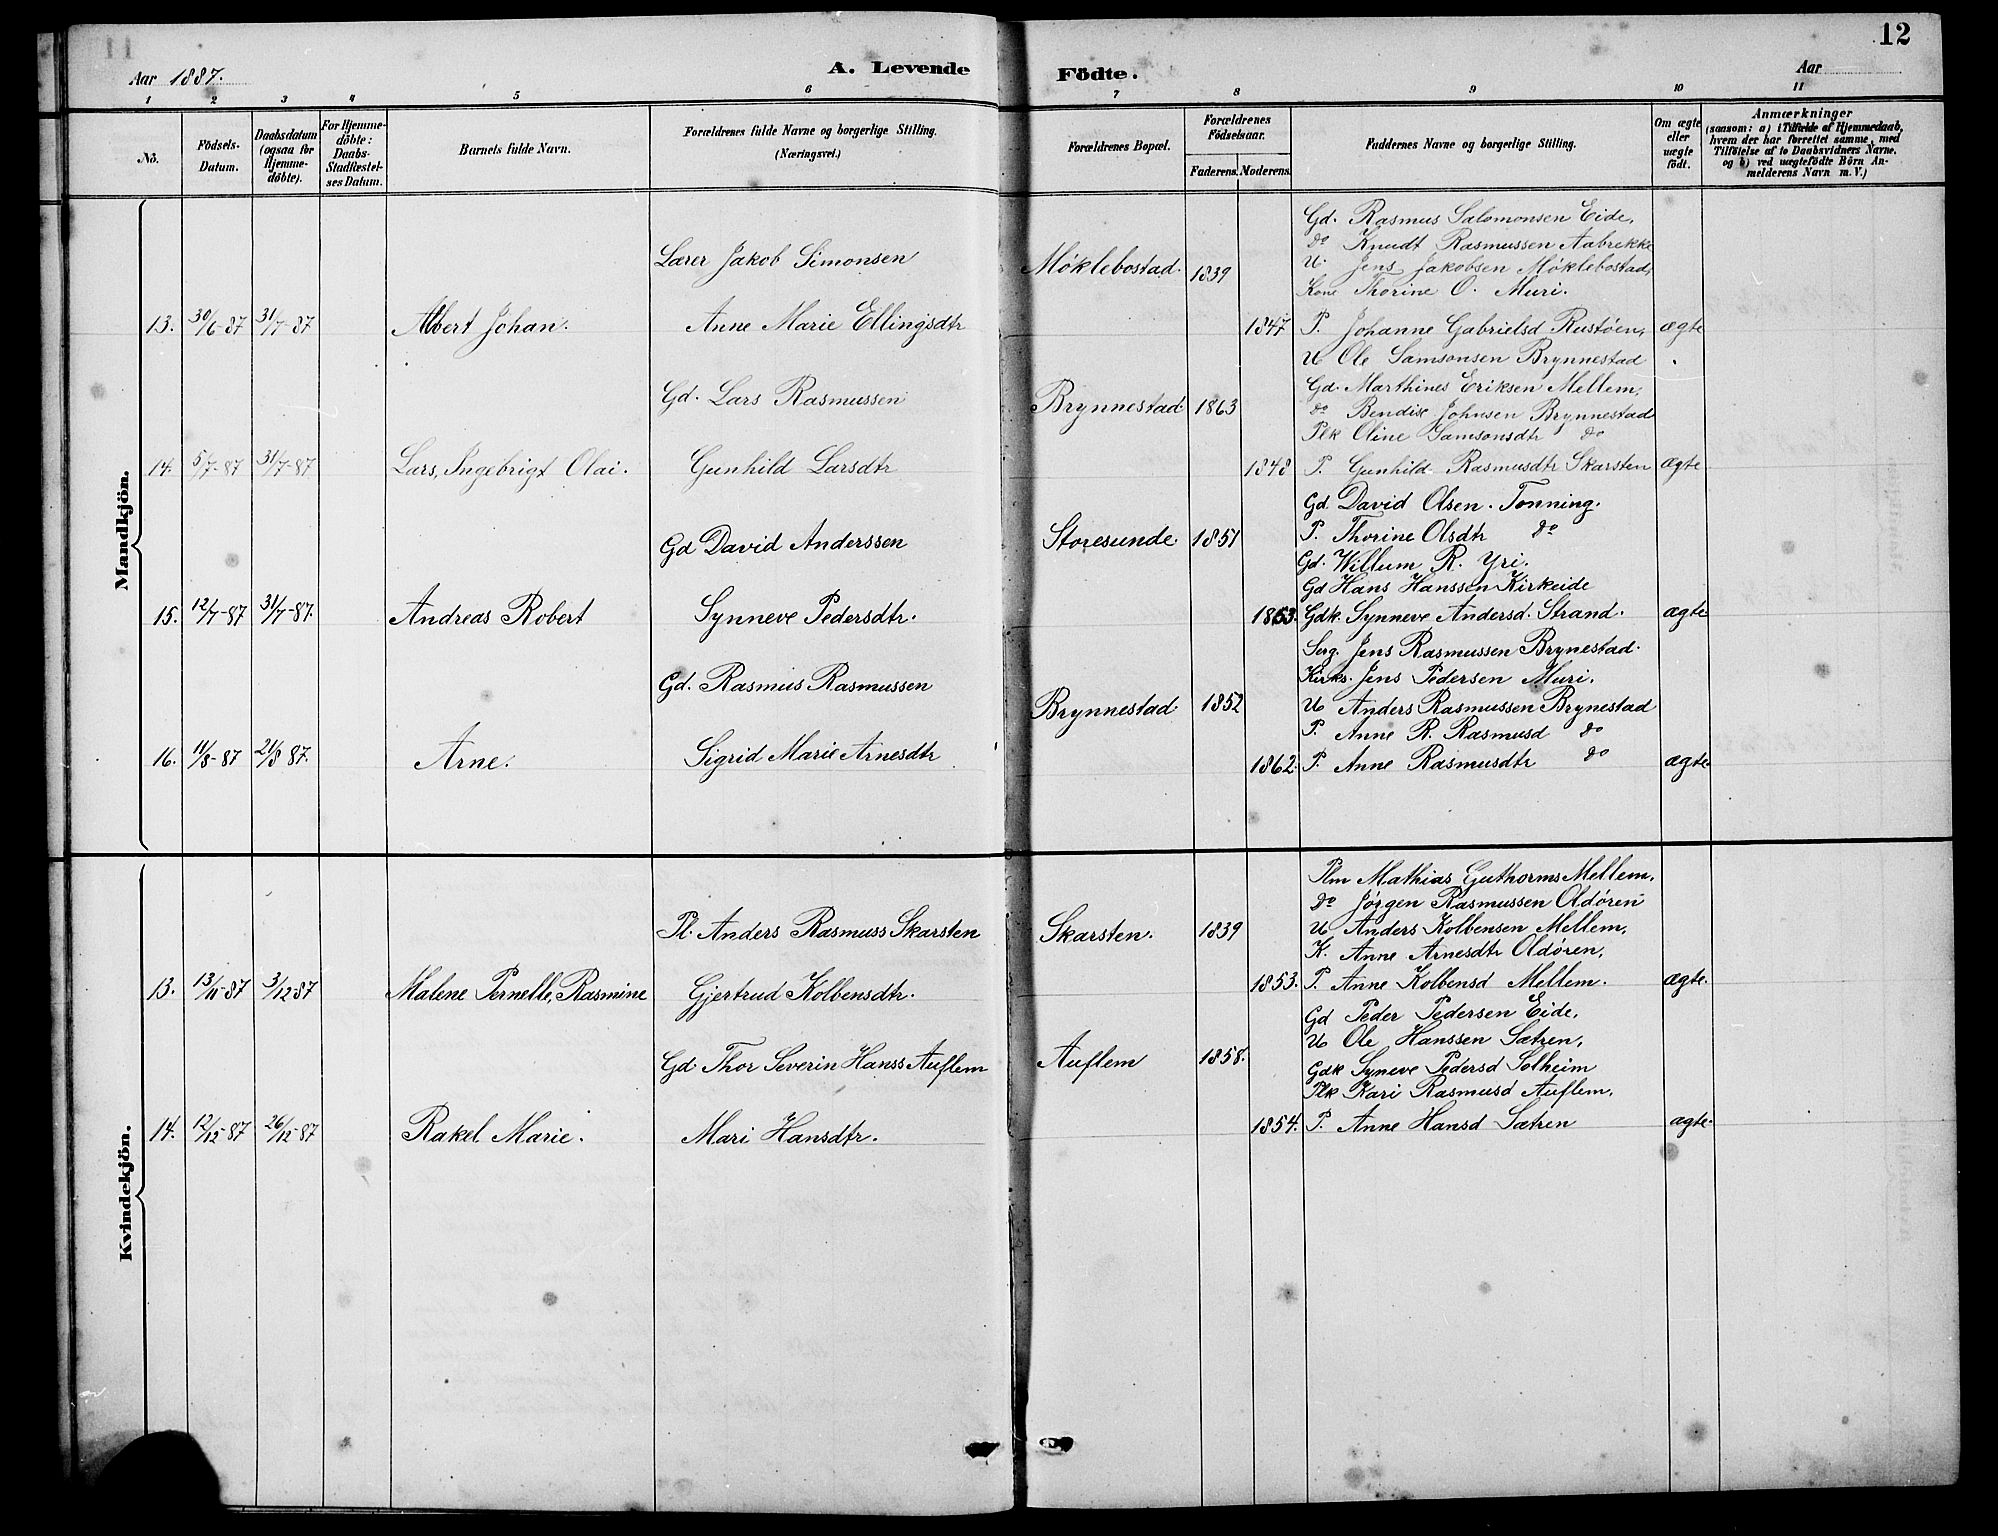 12
Aar 1887.
A. Levende
Födte.
Aar
1 2 3 4 5 6 7 8 9 10 11
No.
Födsels-
Datum.
Daabsdatum
(ogsaa for
Hjemme-
döbte).
For Hjemme-
döbte:
Daabs-
Stadfæstel-
ses Datum.
Barnets fulde Navn.
Forældrenes fulde Navne og borgerlige Stilling.
(Næringsvei.)
Forældrenes Bopæl.
Forældrenes
Födselsaar.
Faderens. Moderens.
Faddernes Navne og borgerlige Stilling.
Om ægte
eller
uægte
födt.
Anmærkninger
(saasom: a) i Tilfælde af Hjemmedaab,
hvem der har forrettet samme, med
Tilföielse af to Daabsvidners Navne,
og b) ved uægtefödte Börn An-
melderens Navn m. V.)
Mandkjön.
Lærer Jakob Simonsen
Møklebostad. 1839
Gd. Rasmus Salomonsen Eide,
do Knudt Rasmussen Aabrekke
U. Jens Jakobsen Møklebostad,
Kone Thorine O. Muri.
13. 30/6-87 31/7-87 Albert Johan. Anne Marie Ellingsdtr 1847 P. Johanne Gabrielsd Rustøen, ægte
U Ole Samsonsen Brynnestad
Gd. Lars Rasmussen
Brynnestad 1863
Gd. Marthines Eriksen Mellem,
do Bendix Johnsen Brynnestad
Plk Oline Samsonsdtr do
14. 5/7-87 31/7-87 Lars, Ingebrigt Olai. Gunhild Larsdtr 1848 P. Gunhild Rasmusdtr Skarsten ægte
Gd David Olsen. Tonning.
Gd David Anderssen
Storesunde 1851
P. Thorine Olsdtr do
Gd. Willum R. Yri.
Gd Hans Hanssen Kirkeide
15. 12/7-87 31/7-87. Andreas Robert Synneve Pedersdtr. 1853. Gdk. Synneve Andersd. Strand. ægte
Serg. Jens Rasmussen Brynestad.
Gd. Rasmus Rasmussen
Brynnestad 1852
Kirks. Jens Pedersen Muri.
U Anders Rasmussen Brynestad
P. Anne R. Rasmusd do
16. 11/8-87 21/8 87. Arne. Sigrid Marie Arnesdtr 1862. P. Anne Rasmusdtr do ægte
Kvindekjön.
Plm Mathias Guthorms Mellem,
do Jørgen Rasmussen Oldøren
Pl. Anders Rasmuss Skarsten
Skarsten. 1839
U Anders Kolbensen Mellem,
K. Anne Arnesdtr Oldøren,
13. 13/11-87 3/12 87 Malene Pernelle, Rasmine Gjertrud Kolbensdtr. 1853. P. Anne Kolbensd Mellem. ægte.
Gd Peder Pedersen Eide,
U Ole Hanssen Sætren,
Gd Thor Severin Hanss Auflem
Auflem 1858.
Gdk Syneve Pedersd Solheim
Plk Kari Rasmusd Auflem,
14. 12/12-87 26/12-87 Rakel Marie. Mari Hansdtr. 1854. P. Anne Hansd Sætren ægte.